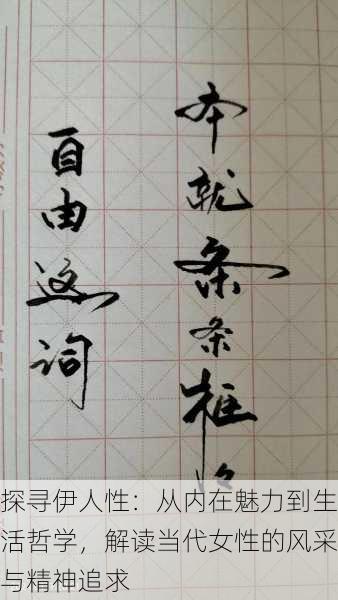 自由这词
本就条条框
探寻伊人性：从内在魅力到生
活哲学，解读当代女性的风采
与精神追求